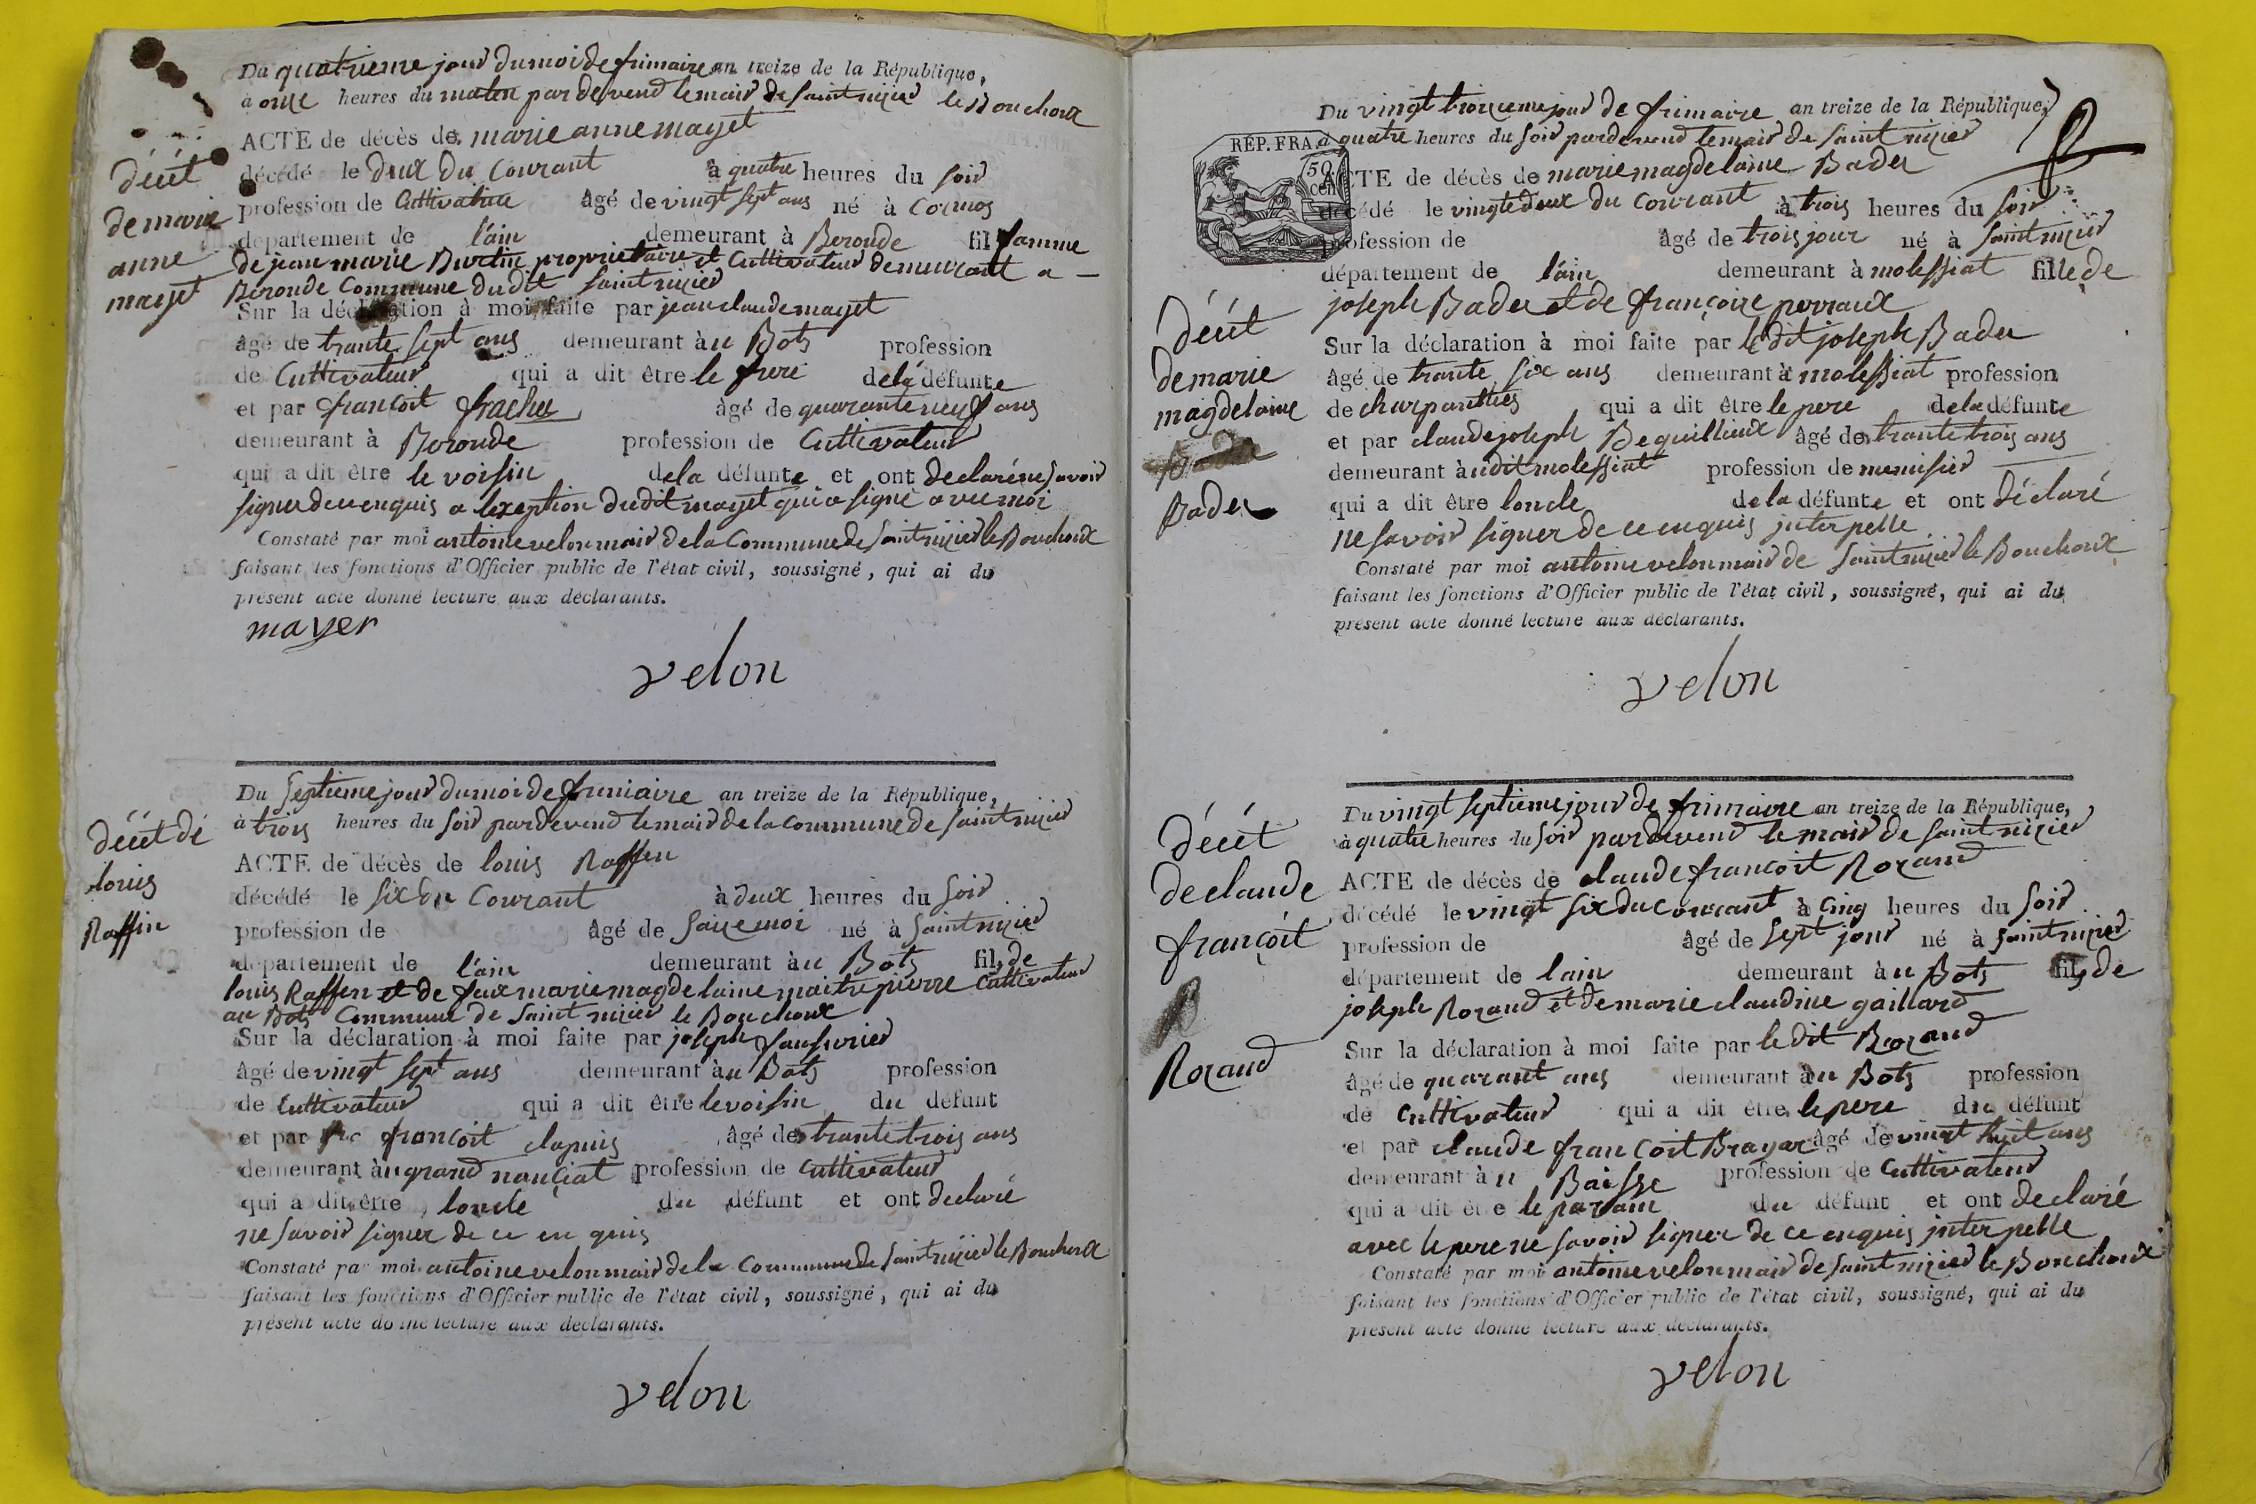 Du quatrieme jour du moi de frimaire an treize de la République,
à onze heures du matin par devend le maire de Saint nizier le Bouchoux
ACTE de décès de marie anne mayet
décédé le deux du Courant à quatre heures du soir
profession de Cultivatrice âgé de vingt sept ans né à Cormos
département de l'ain demeurant à Beronde fil famme
de jean marie Burtin proprietaire et Cultivateur demeurant a –
Beronde Commune du dit Saint nizier
Sur la déclaration à moi faite par jean claude mayet
âgé de trante sept ans demeurant à u Bots profession
de Cultivateur qui a dit être le frere de la défunte
et par françoit frachet âgé de quarante neuf ans
demeurant à Beronde profession de Cultivateur
qui a dit être le voisin de la défunte et ont declaré ne savoir
signer de ce enquis a lexeption du dit mayet qui a signé avec moi
Constaté par moi antoine velon maire de la Commune de Saint nizier le Bouchoux
faisant les fonctions d'Officier public de l'état civil, soussigné, qui ai du
présent acte donné lecture aux déclarants.
mayer
velon
décét
de marie
anne
mayet
Du Septieme jour du moi de frimaire an treize de la République,
à trois heures du soir par devend le maire de la commune de Saint nizier
ACTE de décès de louis Raffin
décédé le six du Courant à deux heures du soir
profession de âgé de saize moi né à Saint nizier
département de l'ain demeurant à u Bots fils de
louis Raffin et de feux marie magdelaine maitrepierre Cultivateur
au Bots Commune de Saint nizier le Bouchoux
Sur la déclaration à moi faite par joseph
âgé de vingt sept ans demeurant à u Bots profession
de Cultivateur qui a dit être le voisin du défunt
et par françoit clapuis âgé de trante trois ans
demeurant à u grand nançiat profession de Cultivateur
qui a dit être loncle du défunt et ont declaré
ne savoir signer de ce en quis
Constaté par moi antoine velon maire de la Commune de Saint nizier le Bouchoux
faisant les fonctions d'Officier public de l'état civil, soussigné, qui ai du
présent acte donné lecture aux déclarants.
velon
décét de
louis
Raffin
Du vingt troizieme jour de frimaire an treize de la République,
à quatre heures du soir par devend le maire de Saint nizier
RÉP. FRA.
50
cen
ACTE de décès de marie magdelaine Bader
décédé le vingte deux du Courant à trois heures du soir
profession de âgé de trois jour né à Saint nizier
département de l'ain demeurant à molessiat fille de
joseph Bader et de françoise perraux
Sur la déclaration à moi faite par le dit joseph Bader
âgé de trante six ans demeurant à molessiat profession
de charpanthiés qui a dit être le pere de la défunte
et par claude joseph Bequillieux âgé de trante trois ans
demeurant à u dit molessiat profession de menisier
qui a dit être loncle de la défunte et ont déclaré
ne savoir signer de ce enquis jnter pellé
Constaté par moi antoine velon maire de Saint nizier le Bouchoux
faisant les fonctions d'Officier public de l'état civil, soussigné, qui ai du
présent acte donné lecture aux déclarants.
velon
décét
de marie
magdelaine
Bader
Du vingt septieme jour de frimaire an treize de la République,
à quatre heures du soir par devend le maire de Saint nizier
ACTE de décès de claude françoit Rozand
décédé le vingt six du courant à cinq heures du soir
profession de âgé de sept jour né à Saint nizier
département de lain demeurant à u Bots fils de
joseph Rozand et de marie claudine gaillard
Sur la déclaration à moi faite par le dit Rozand
âgé de quarant ans demeurant à u Bots profession
de Cultivateur qui a dit être le pere du défunt
et par claude françoit Brayar âgé de vingt huit ans
demeurant à u Baisse profession de Cultivateur
qui a dit être le parain du défunt et ont declaré
avec le pere ne savoir signer de ce enquis jnter pellé
Constaté par moi antoine velon maire de Saint nizier le Bouchoux
faisant les fonctions d'Officier public de l'état civil, soussigné, qui ai du
présent acte donné lecture aux déclarants.
velon
décét
de claude
françoit
Rozand